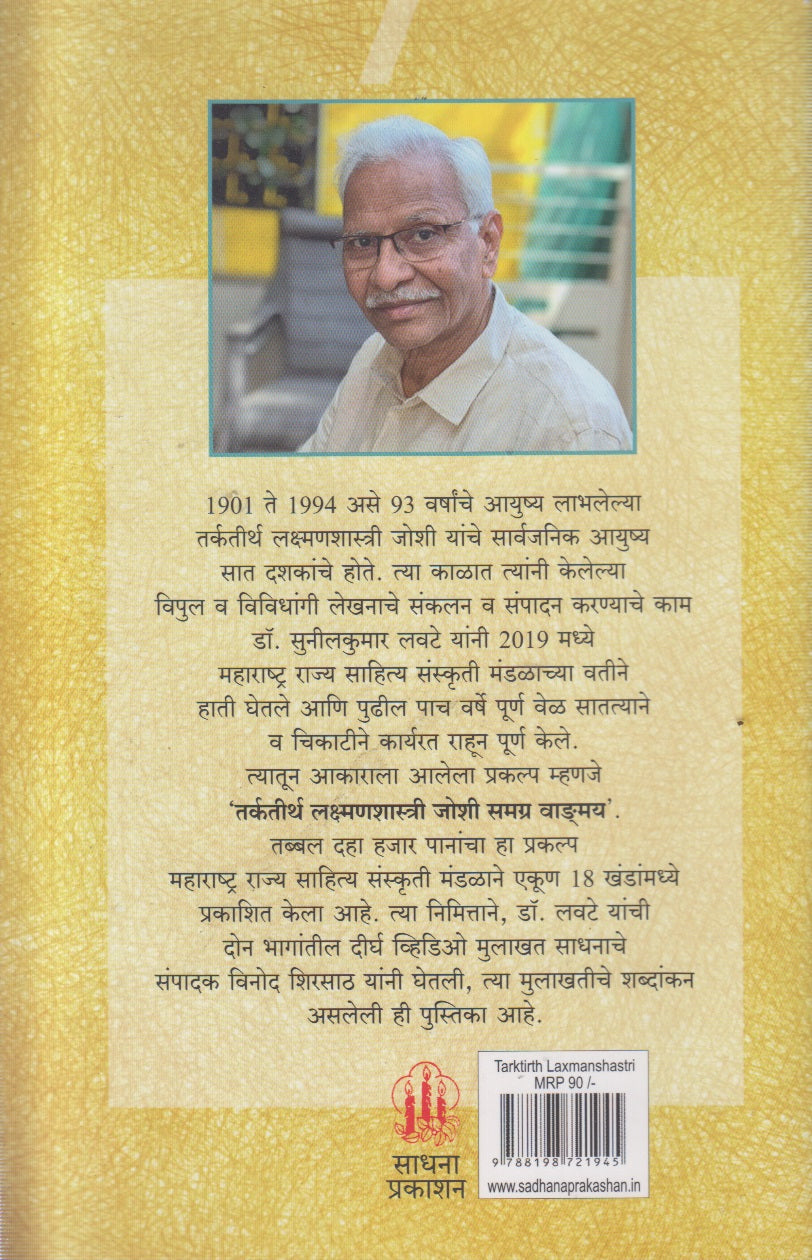 1901 ते 1994 असे 93 वर्षांचे आयुष्य लाभलेल्या
तर्कतीर्थ लक्ष्मणशास्त्री जोशी यांचे सार्वजनिक आयुष्य
सात दशकांचे होते. त्या काळात त्यांनी केलेल्या
विपुल व विविधांगी लेखनाचे संकलन व संपादन करण्याचे काम
डॉ. सुनीलकुमार लवटे यांनी 2019 मध्ये
महाराष्ट्र राज्य साहित्य संस्कृती मंडळाच्या वतीने
हाती घेतले आणि पुढील पाच वर्षे पूर्ण वेळ सातत्याने
व चिकाटीने कार्यरत राहून पूर्ण केले.
त्यातून आकाराला आलेला प्रकल्प म्हणजे
'तर्कतीर्थ लक्ष्मणशास्त्री जोशी समग्र वाङ्मय'.
तब्बल दहा हजार पानांचा हा प्रकल्प
महाराष्ट्र राज्य साहित्य संस्कृती मंडळाने एकूण 18 खंडांमध्ये
प्रकाशित केला आहे. त्या निमित्ताने, डॉ. लवटे यांची
दोन भागांतील दीर्घ व्हिडिओ मुलाखत साधनाचे
संपादक विनोद शिरसाठ यांनी घेतली, त्या मुलाखतीचे शब्दांकन
असलेली ही पुस्तिका आहे.
साधना
प्रकाशन
Tarktirth Laxmanshastri
MRP 90 /-
9 788198 721945
www.sadhanaprakashan.in